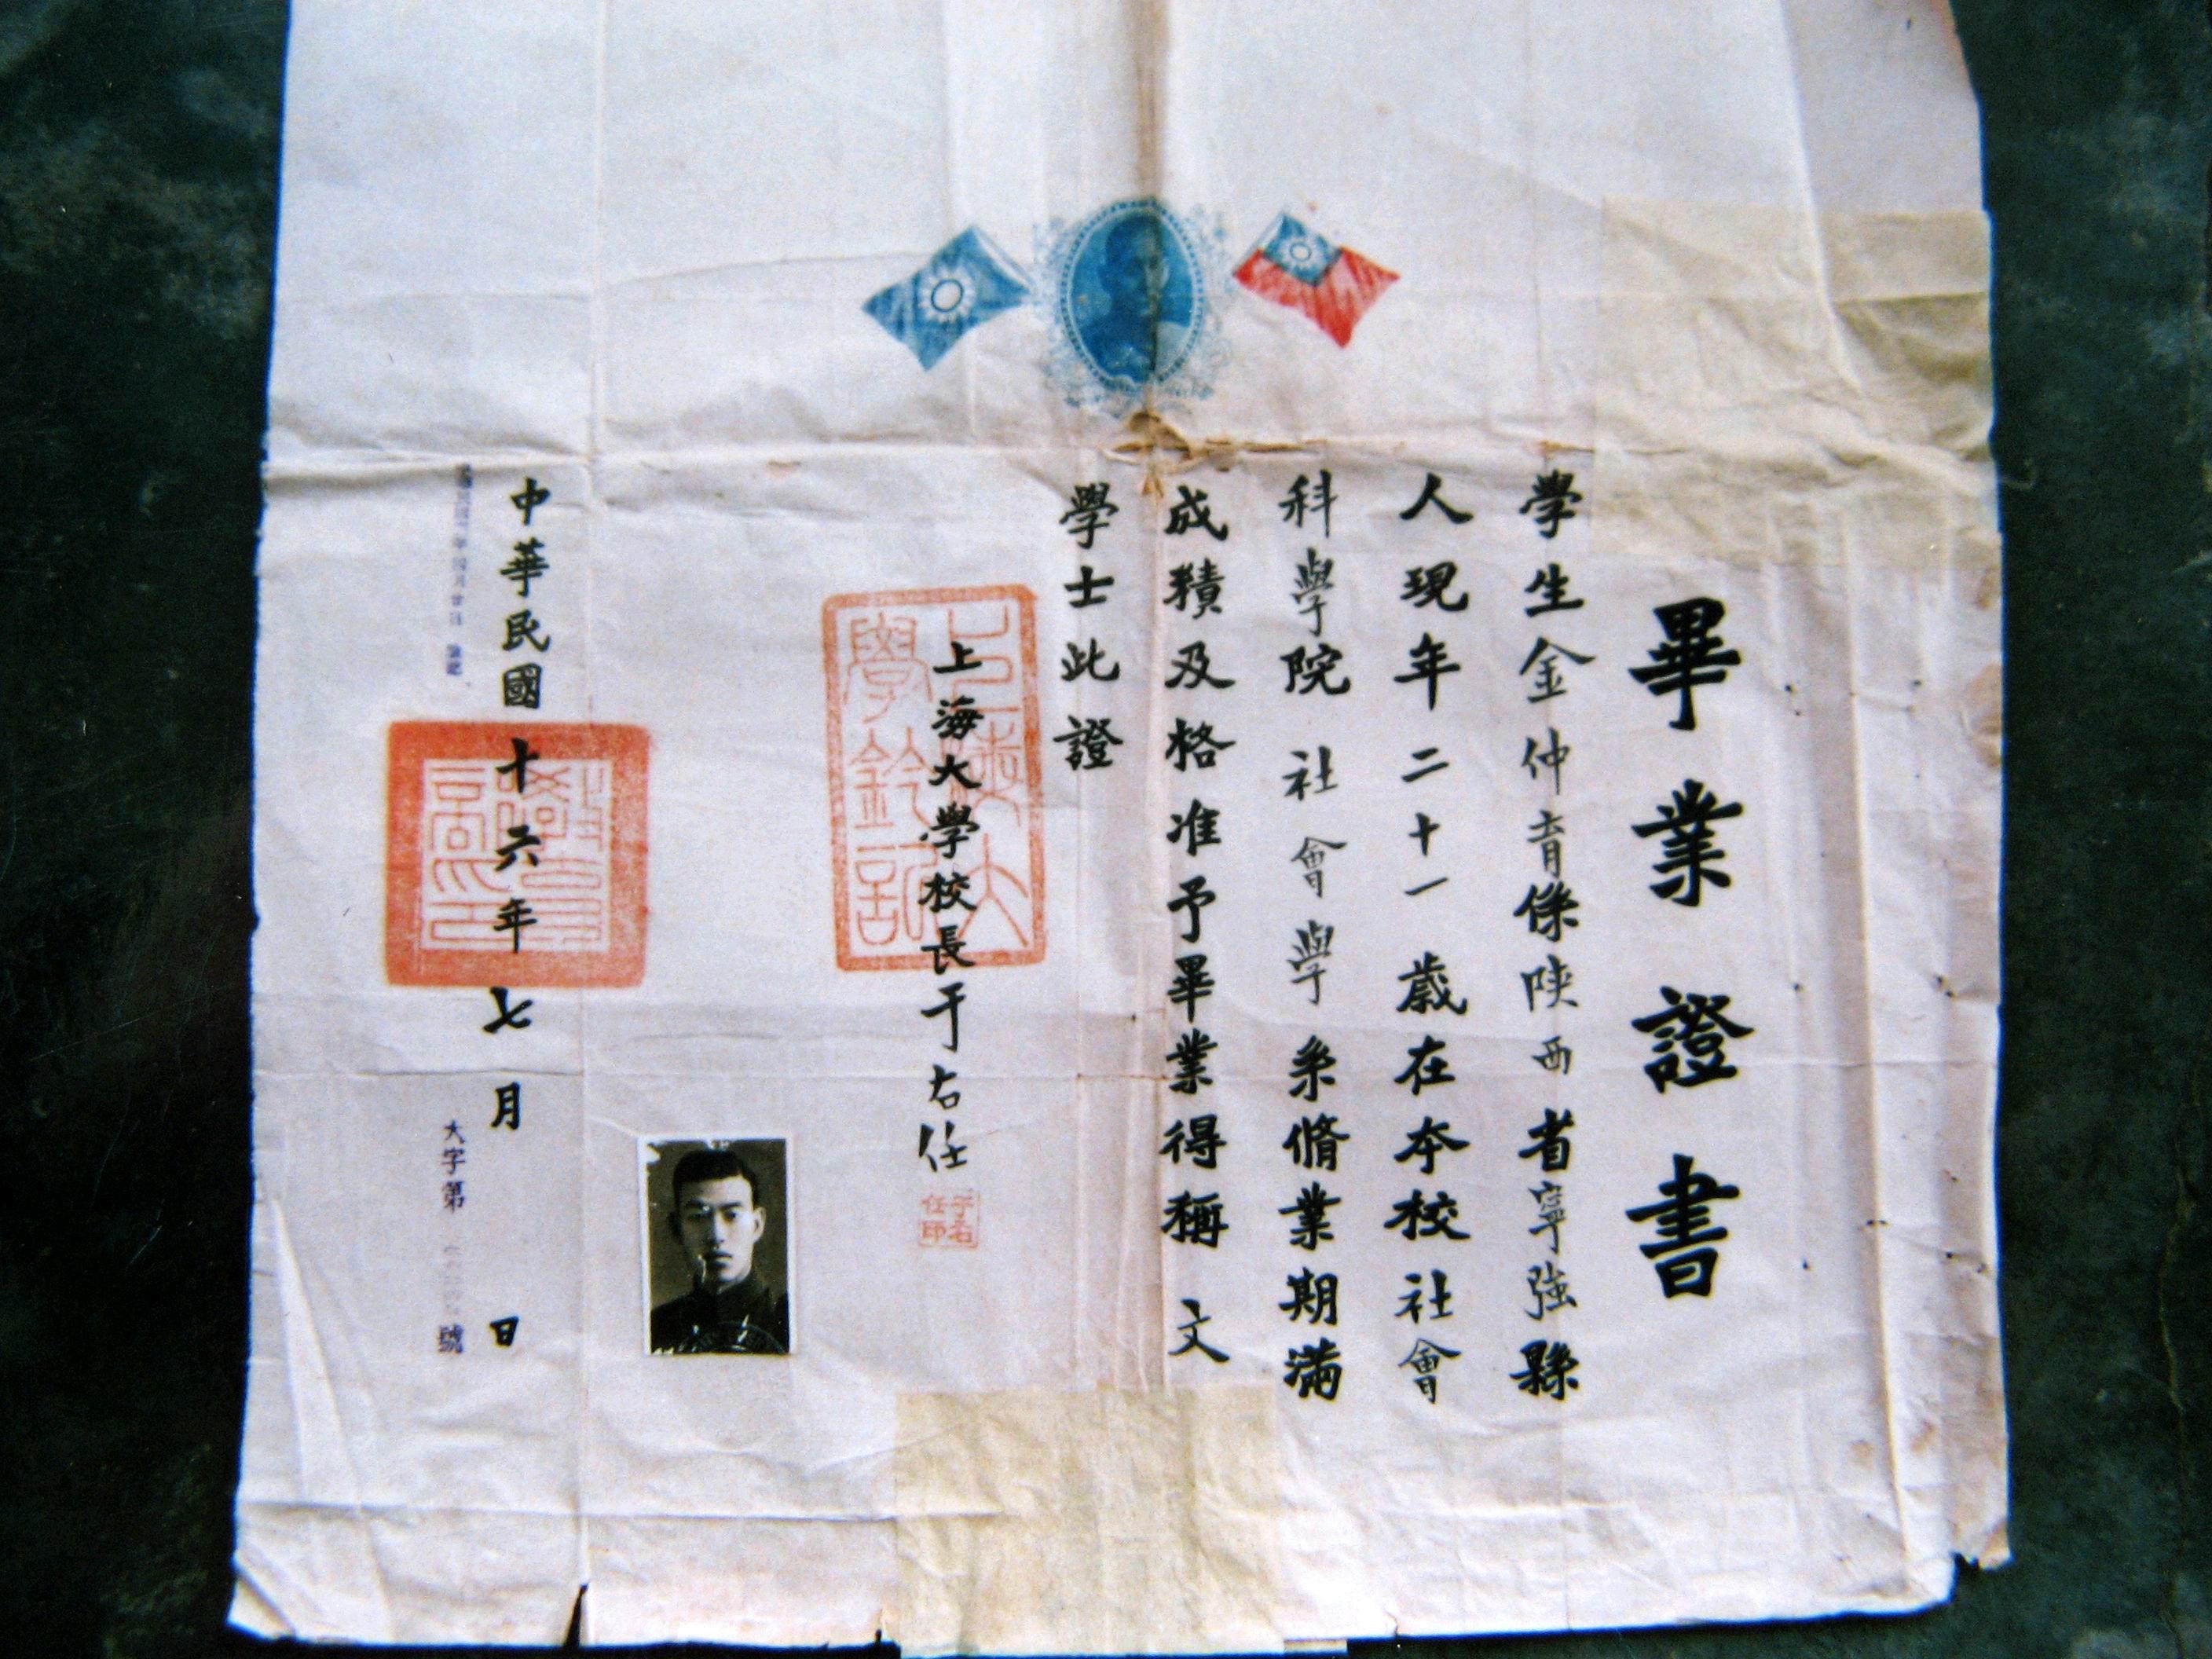 畢業證書
學生金仲育係陝西省寧強縣
人現年二十一歲在本校社會
科學院社會學系脩業期滿
成績及格准予畢業得稱文
學士此證
上海大學校長于右任
中華民國十六年七月 日
大字第 號